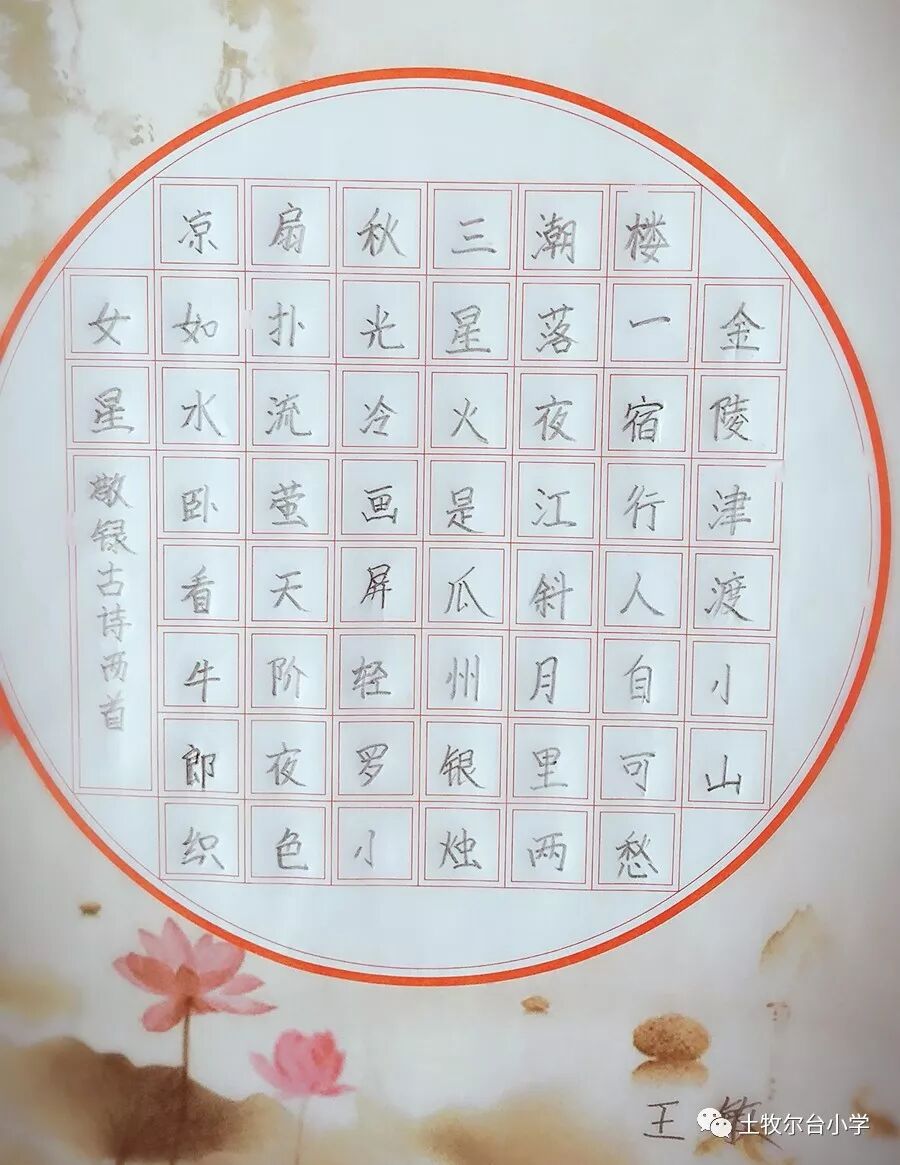 金陵津渡小山
楼一宿行人自可愁
潮落夜江斜月里两
三星火是瓜州银烛
秋光冷画屏轻罗小
扇扑流萤天阶夜色
凉如水卧看牛郎织
女星
敬银古诗两首
王敏
土牧尔台小学